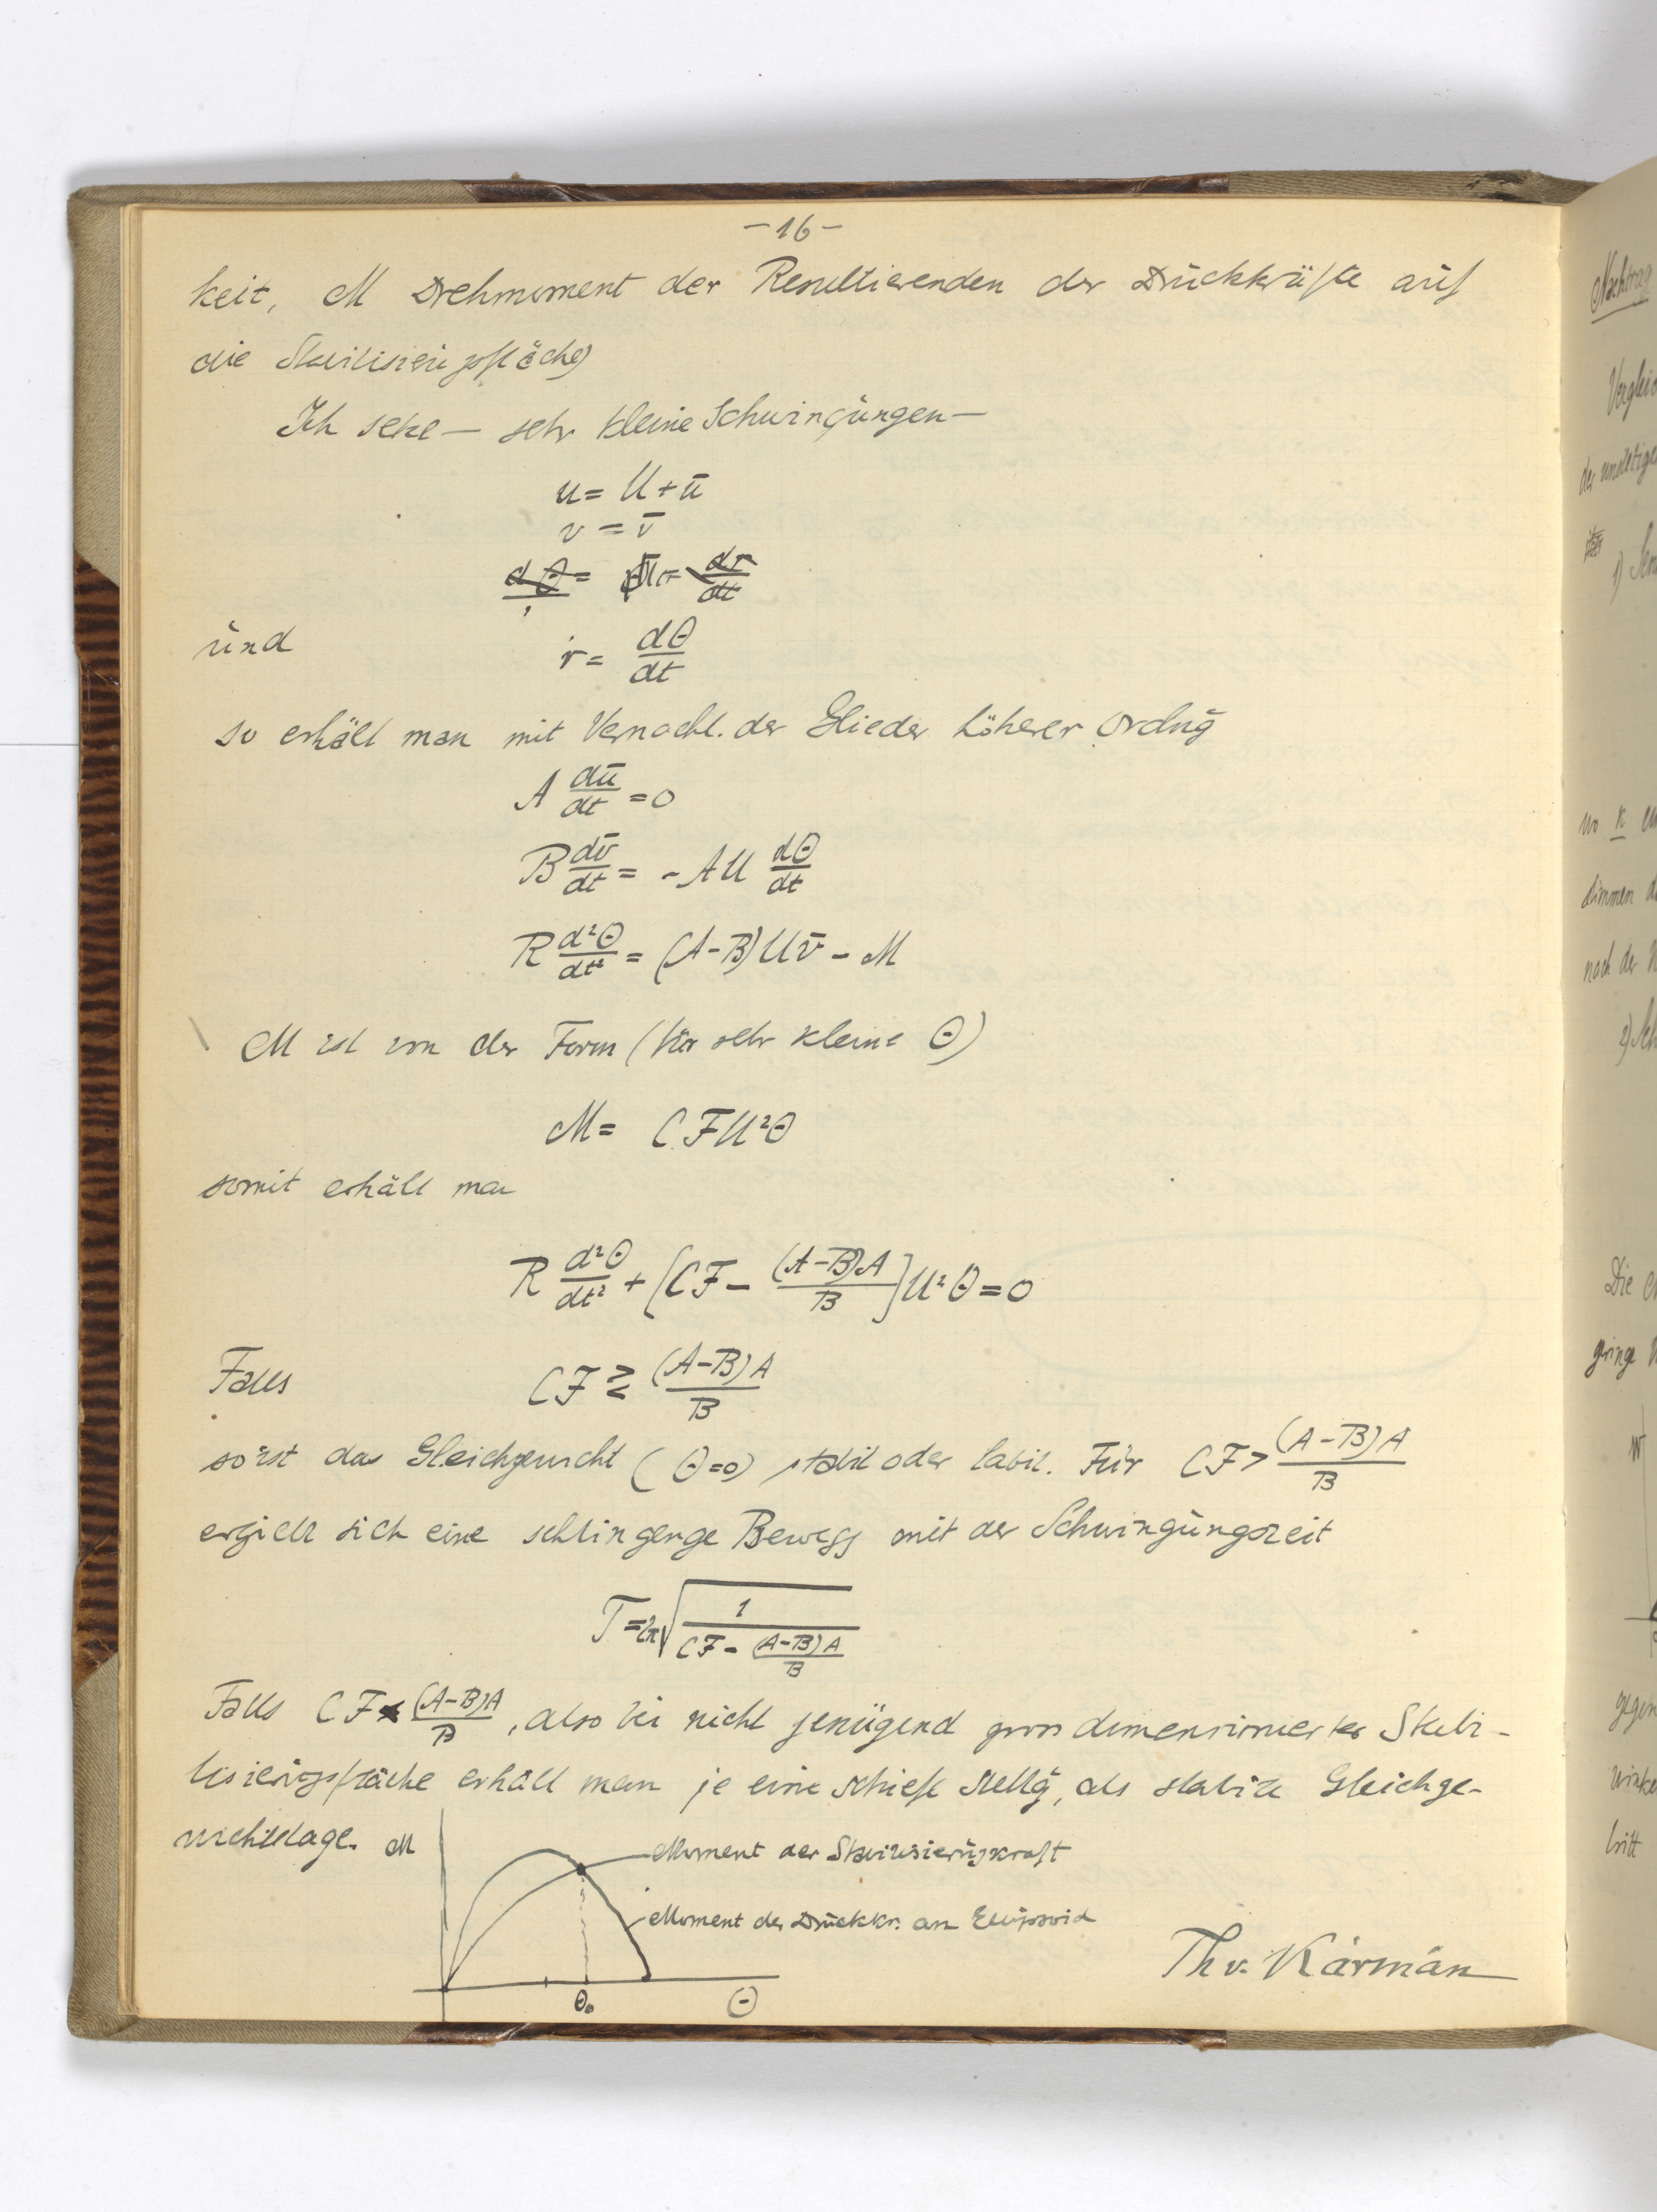 -16-
keit, M Drehmoment der Resultierenden der Druckkräfte auf
die Stabilisierungsfläche)
Ich setze — sehr kleine Schwingungen —
u = U + ū
v = v̄
und r = dθ/dt
so erhält man mit Vernachl. der Glieder höherer Ordng
A dū/dt = 0
B dv̄/dt = - A U dθ/dt
R d²θ/dt² = (A-B) U v̄ - M
M ist von der Form (für sehr kleine θ)
M = C F U² θ
somit erhält man
R d²θ/dt² + [CF - (A-B)A/B] U² θ = 0
Falls CF ≷ (A-B)A/B
so ist das Gleichgewicht (θ=0) stabil oder labil. Für CF > (A-B)A/B
ergiebt sich eine Bewegg mit der Schwingungszeit
T = 2π √(1/(CF - (A-B)A/B))
Falls CF < (A-B)A/B, also bei nicht genügend gross dimensionierter Stabi-
lisierungsfläche erhält man je eine schiefe Stellg, als stabile Gleichge-
wichtslage. M
Moment der Stabilisierungskraft
Moment der Druckkr. am Ellipsoid
Th v. Kármán
θ₀ θ
Nachtrag
Verglei
1)
wo k
nach der
2)
Die
geringe
W
gegen
winke
tritt